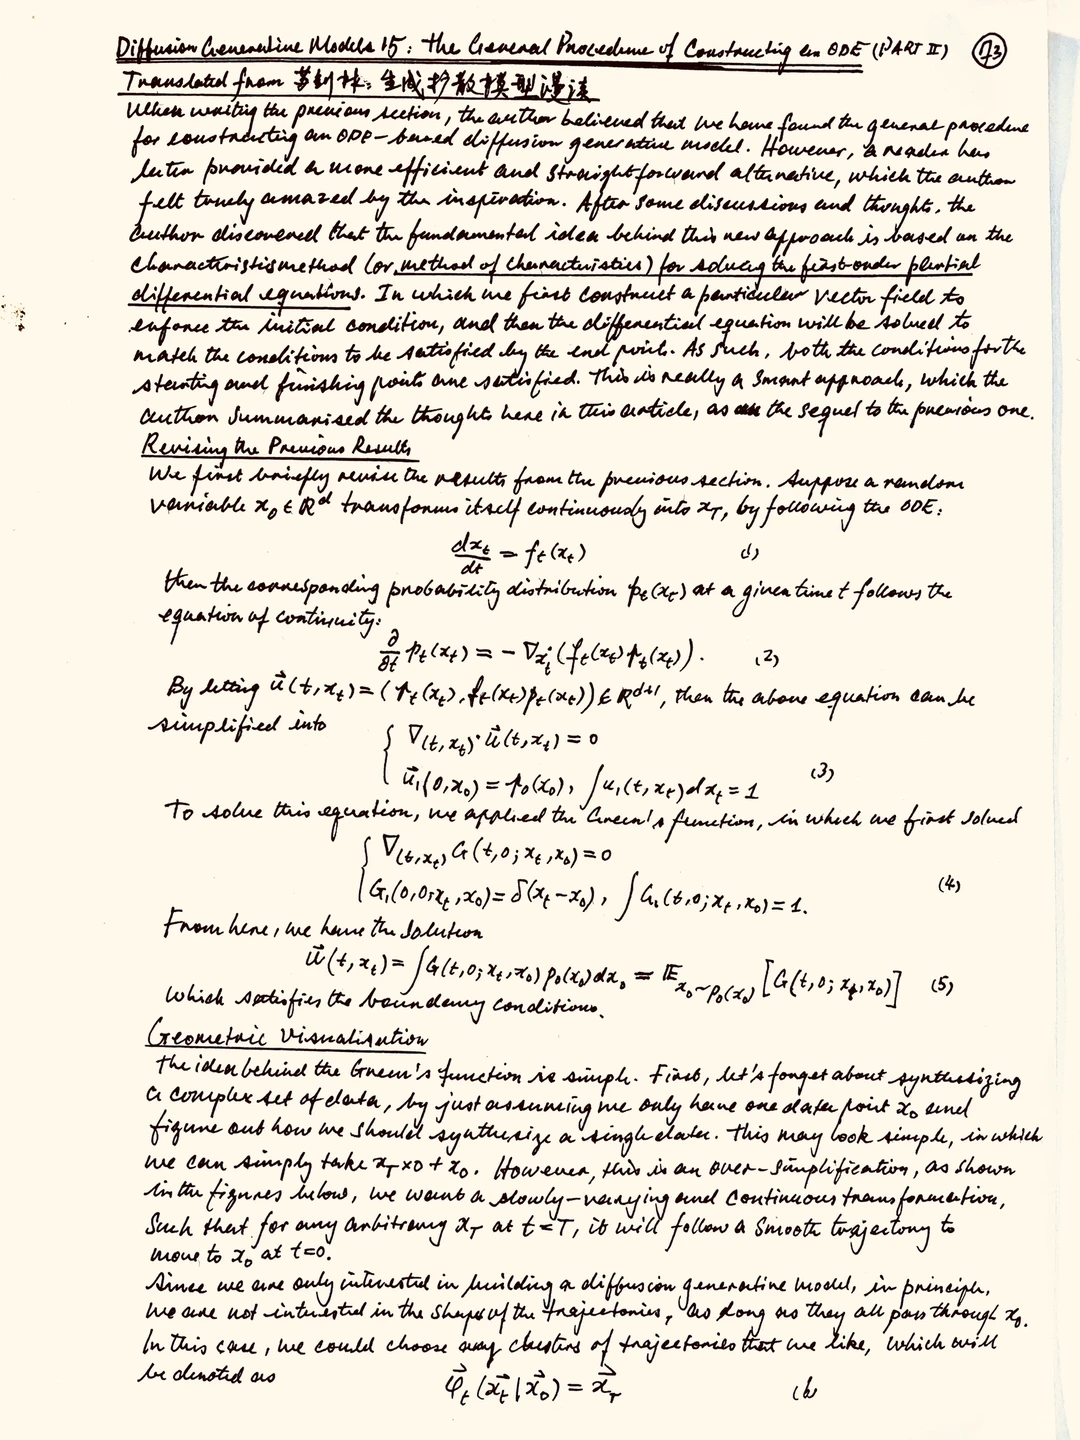 Diffusion Generative Models 15: The General Procedure of Constructing an ODE (PART II) 173
Translated from 苏剑林: 生成扩散模型漫谈
When writing the previous section, the author believed that we have found the general procedure
for constructing an ODE-based diffusion generative model. However, a reader has
later provided a more efficient and straightforward alternative, which the author
felt truely amazed by the inspiration. After some discussions and thoughts, the
author discovered that the fundamental idea behind this new approach is based on the
characteristics method (or method of characteristics) for solving the first-order partial
differential equations. In which we first construct a particular vector field to
enforce the initial condition, and then the differential equation will be solved to
match the conditions to be satisfied by the end point. As such, both the conditions for the
starting and finishing points are satisfied. This is really a smart approach, which the
author summarised the thoughts here in this article, as the sequel to the previous one.
Revising the Previous Results
We first briefly revise the results from the previous section. Suppose a random
variable x₀ ∈ ℝᵈ transforms itself continuously into x_T, by following the ODE:
dx_t/dt = f_t(x_t) (1)
then the corresponding probability distribution p_t(x_t) at a given time t follows the
equation of continuity:
∂/∂t p_t(x_t) = - ∇_{x_t}(f_t(x_t) p_t(x_t)). (2)
By letting u⃗(t, x_t) = (p_t(x_t), f_t(x_t)p_t(x_t)) ∈ ℝ^{d+1}, then the above equation can be
simplified into
{ ∇_{(t,x_t)}· u⃗(t, x_t) = 0
u⃗₁(0, x₀) = p₀(x₀), ∫u₁(t, x_t)dx_t = 1 (3)
To solve this equation, we applied the Green's function, in which we first solved
{ ∇_{(t,x_t)} G(t, 0; x_t, x₀) = 0
G₁(0, 0; x_t, x₀) = δ(x_t - x₀), ∫G₁(t, 0; x_t, x₀) = 1. (4)
From here, we have the solution
u⃗(t, x_t) = ∫G(t, 0; x_t, x₀) p₀(x₀)dx₀ = 𝔼_{x₀~p₀(x₀)} [G(t, 0; x_t, x₀)] (5)
which satisfies the boundary conditions.
Geometric Visualisation
The idea behind the Green's function is simple. First, let's forget about synthesizing
a complex set of data, by just assuming we only have one data point x₀ and
figure out how we should synthesize a single data. This may look simple, in which
we can simply take x_T × 0 + x₀. However, this is an over-simplification, as shown
in the figures below, we want a slowly-varying and continuous transformation,
such that for any arbitrary x_T at t=T, it will follow a smooth trajectory to
move to x₀ at t=0.
Since we are only interested in building a diffusion generative model, in principle,
we are not interested in the shape of the trajectories, as long as they all pass through x₀.
In this case, we could choose any clusters of trajectories that we like, which will
be denoted as
φ⃗_t(x⃗_t|x⃗₀) = x⃗_T (6)